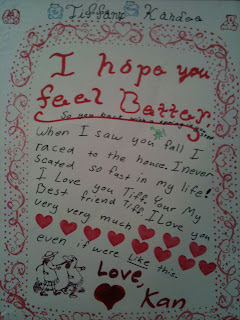 Tiffany Kandoo
I hope you
feel Better
So you have
When I saw you fall I
raced to the house. I never
Scated so fast in my life!
I Love you Tiff. Your My
Best friend Tiff. I Love you
very very much
even if were like this.
Love,
Kan